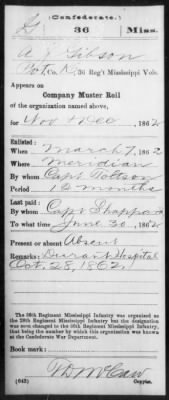 (Confederate.)
G 36 Miss.
A J Gibson
Pvt. Co. K, 36 Reg't Mississippi Vols.
Appears on
Company Muster Roll
of the organization named above,
for Nov & Dec, 1862
Enlisted:
When March 7, 1862
Where Meridian
By whom Capt
Period 12 months
Last paid:
By whom Capt Shappard
To what time June 30, 1862
Present or absent Absent
Remarks: Durant Hospital
Oct. 28, 1862.
The 36th Regiment Mississippi Infantry was organized as
the 38th Regiment Mississippi Infantry but its designation
was soon changed to the 36th Regiment Mississippi Infantry,
that being the number by which this regiment was known at
the Confederate War Department.
Book mark:
(642) Copyist.